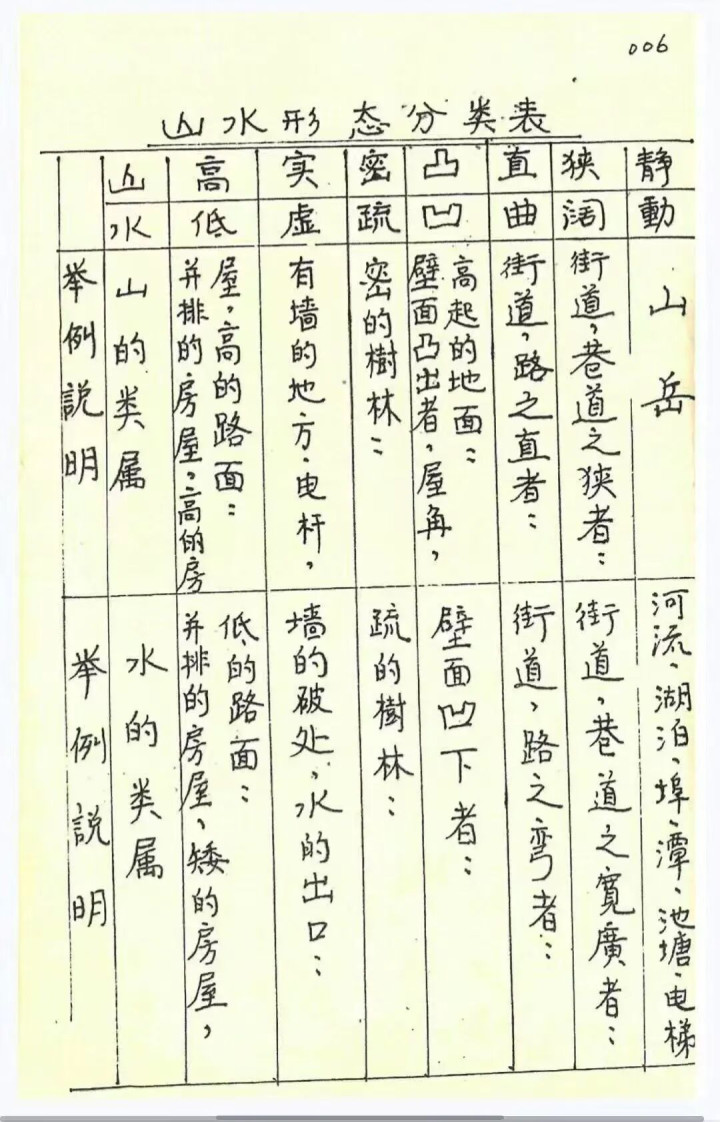 006
山水形态分类表
山 高 实 密 凸 直 狭 静
水 低 虚 疏 凹 曲 阔 動
举例説明
山的类属
并排的房屋，高的房
屋，高的路面：
有墙的地方、电杆，
密的樹林：
壁面凸出者，屋角，
高起的地面：
街道，路之直者：
街道，巷道之狭者：
山岳
举例説明
水的类属
并排的房屋，矮的房屋，
低的路面：
墙的破处，水的出口：
疏的樹林：
壁面凹下者：
街道，路之弯者：
街道，巷道之寬廣者：
河流、湖泊、埠、潭、池塘、电梯